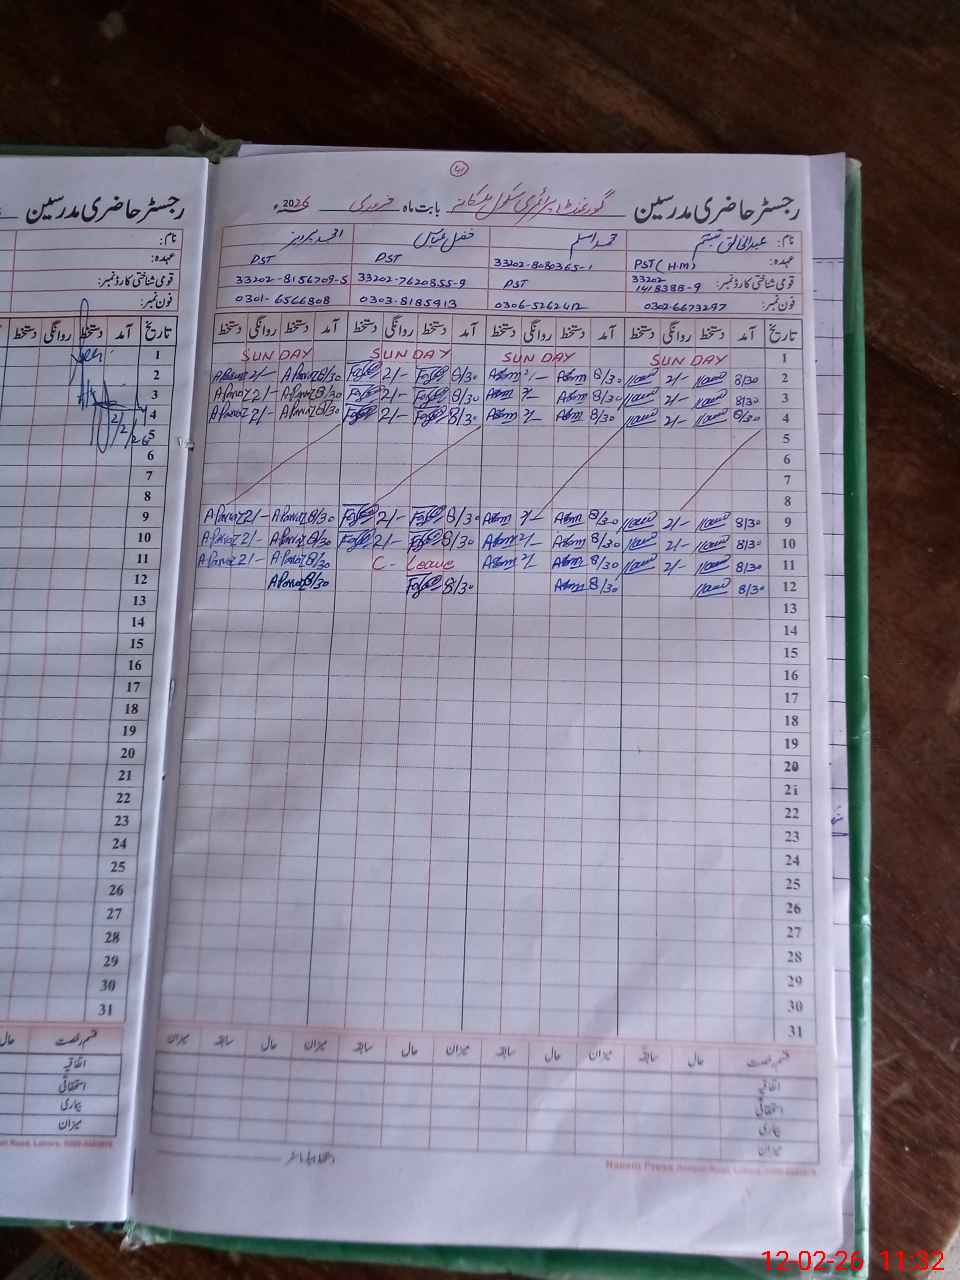 رجسٹر حاضری مدرسین
نام:
عہدہ:
قومی شناختی کارڈ نمبر:
فون نمبر:
تاریخ آمد دستخط روانگی دستخط
1
2
3
4
5
6
7
8
9
10
11
12
13
14
15
16
17
18
19
20
21
22
23
24
25
26
27
28
29
30
31
2/2/26
قسم رخصت حال
اتفاقیہ
استحقاقی
بیماری
میزان
41
رجسٹر حاضری مدرسین گورنمنٹ پرائمری سکول بابت ماہ فروری 2026ء
نام: عبدالخالق تبسم محمد اسلم فضل عباس احمد پرویز
عہدہ: PST (H.M) 33202-8080365-1 PST PST
قومی شناختی کارڈ نمبر: 33202 1418388-9 PST 33202-7620855-9 33202-8156709-5
فون نمبر: 0302-6673297 0306-5262412 0303-8185913 0301-6566808
تاریخ آمد دستخط روانگی دستخط آمد دستخط روانگی دستخط آمد دستخط روانگی دستخط آمد دستخط روانگی دستخط
1 SUNDAY SUNDAY SUNDAY SUNDAY
2 8/30 2/- 8/30 Aslm 2/- 8/30 2/- 8/30 A Parvaz 2/- A Parvaz
3 8/30 2/- 8/30 Aslm 2/- 8/30 2/- 8/30 A Parvaz 2/- A Parvaz
4 8/30 2/- 8/30 Aslm 2/- 8/30 2/- 8/30 A Parvaz 2/- A Parvaz
5
6
7
8
9 8/30 2/- 8/30 Aslm 2/- 8/30 2/- 8/30 A Parvaz 2/- A Parvaz
10 8/30 2/- 8/30 Aslm 2/- 8/30 2/- 8/30 A Parvaz 2/- A Parvaz
11 8/30 2/- 8/30 Aslm 2/- C-Leave 8/30 A Parvaz 2/- A Parvaz
12 8/30 8/30 Aslm 8/30 8/30 A Parvaz
13
14
15
16
17
18
19
20
21
22
23
24
25
26
27
28
29
30
31
قسم رخصت حال سابقہ میزان حال سابقہ میزان حال سابقہ میزان حال سابقہ میزان
اتفاقیہ
استحقاقی
بیماری
میزان
دستخط ہیڈ ماسٹر
12-02-26 11:32